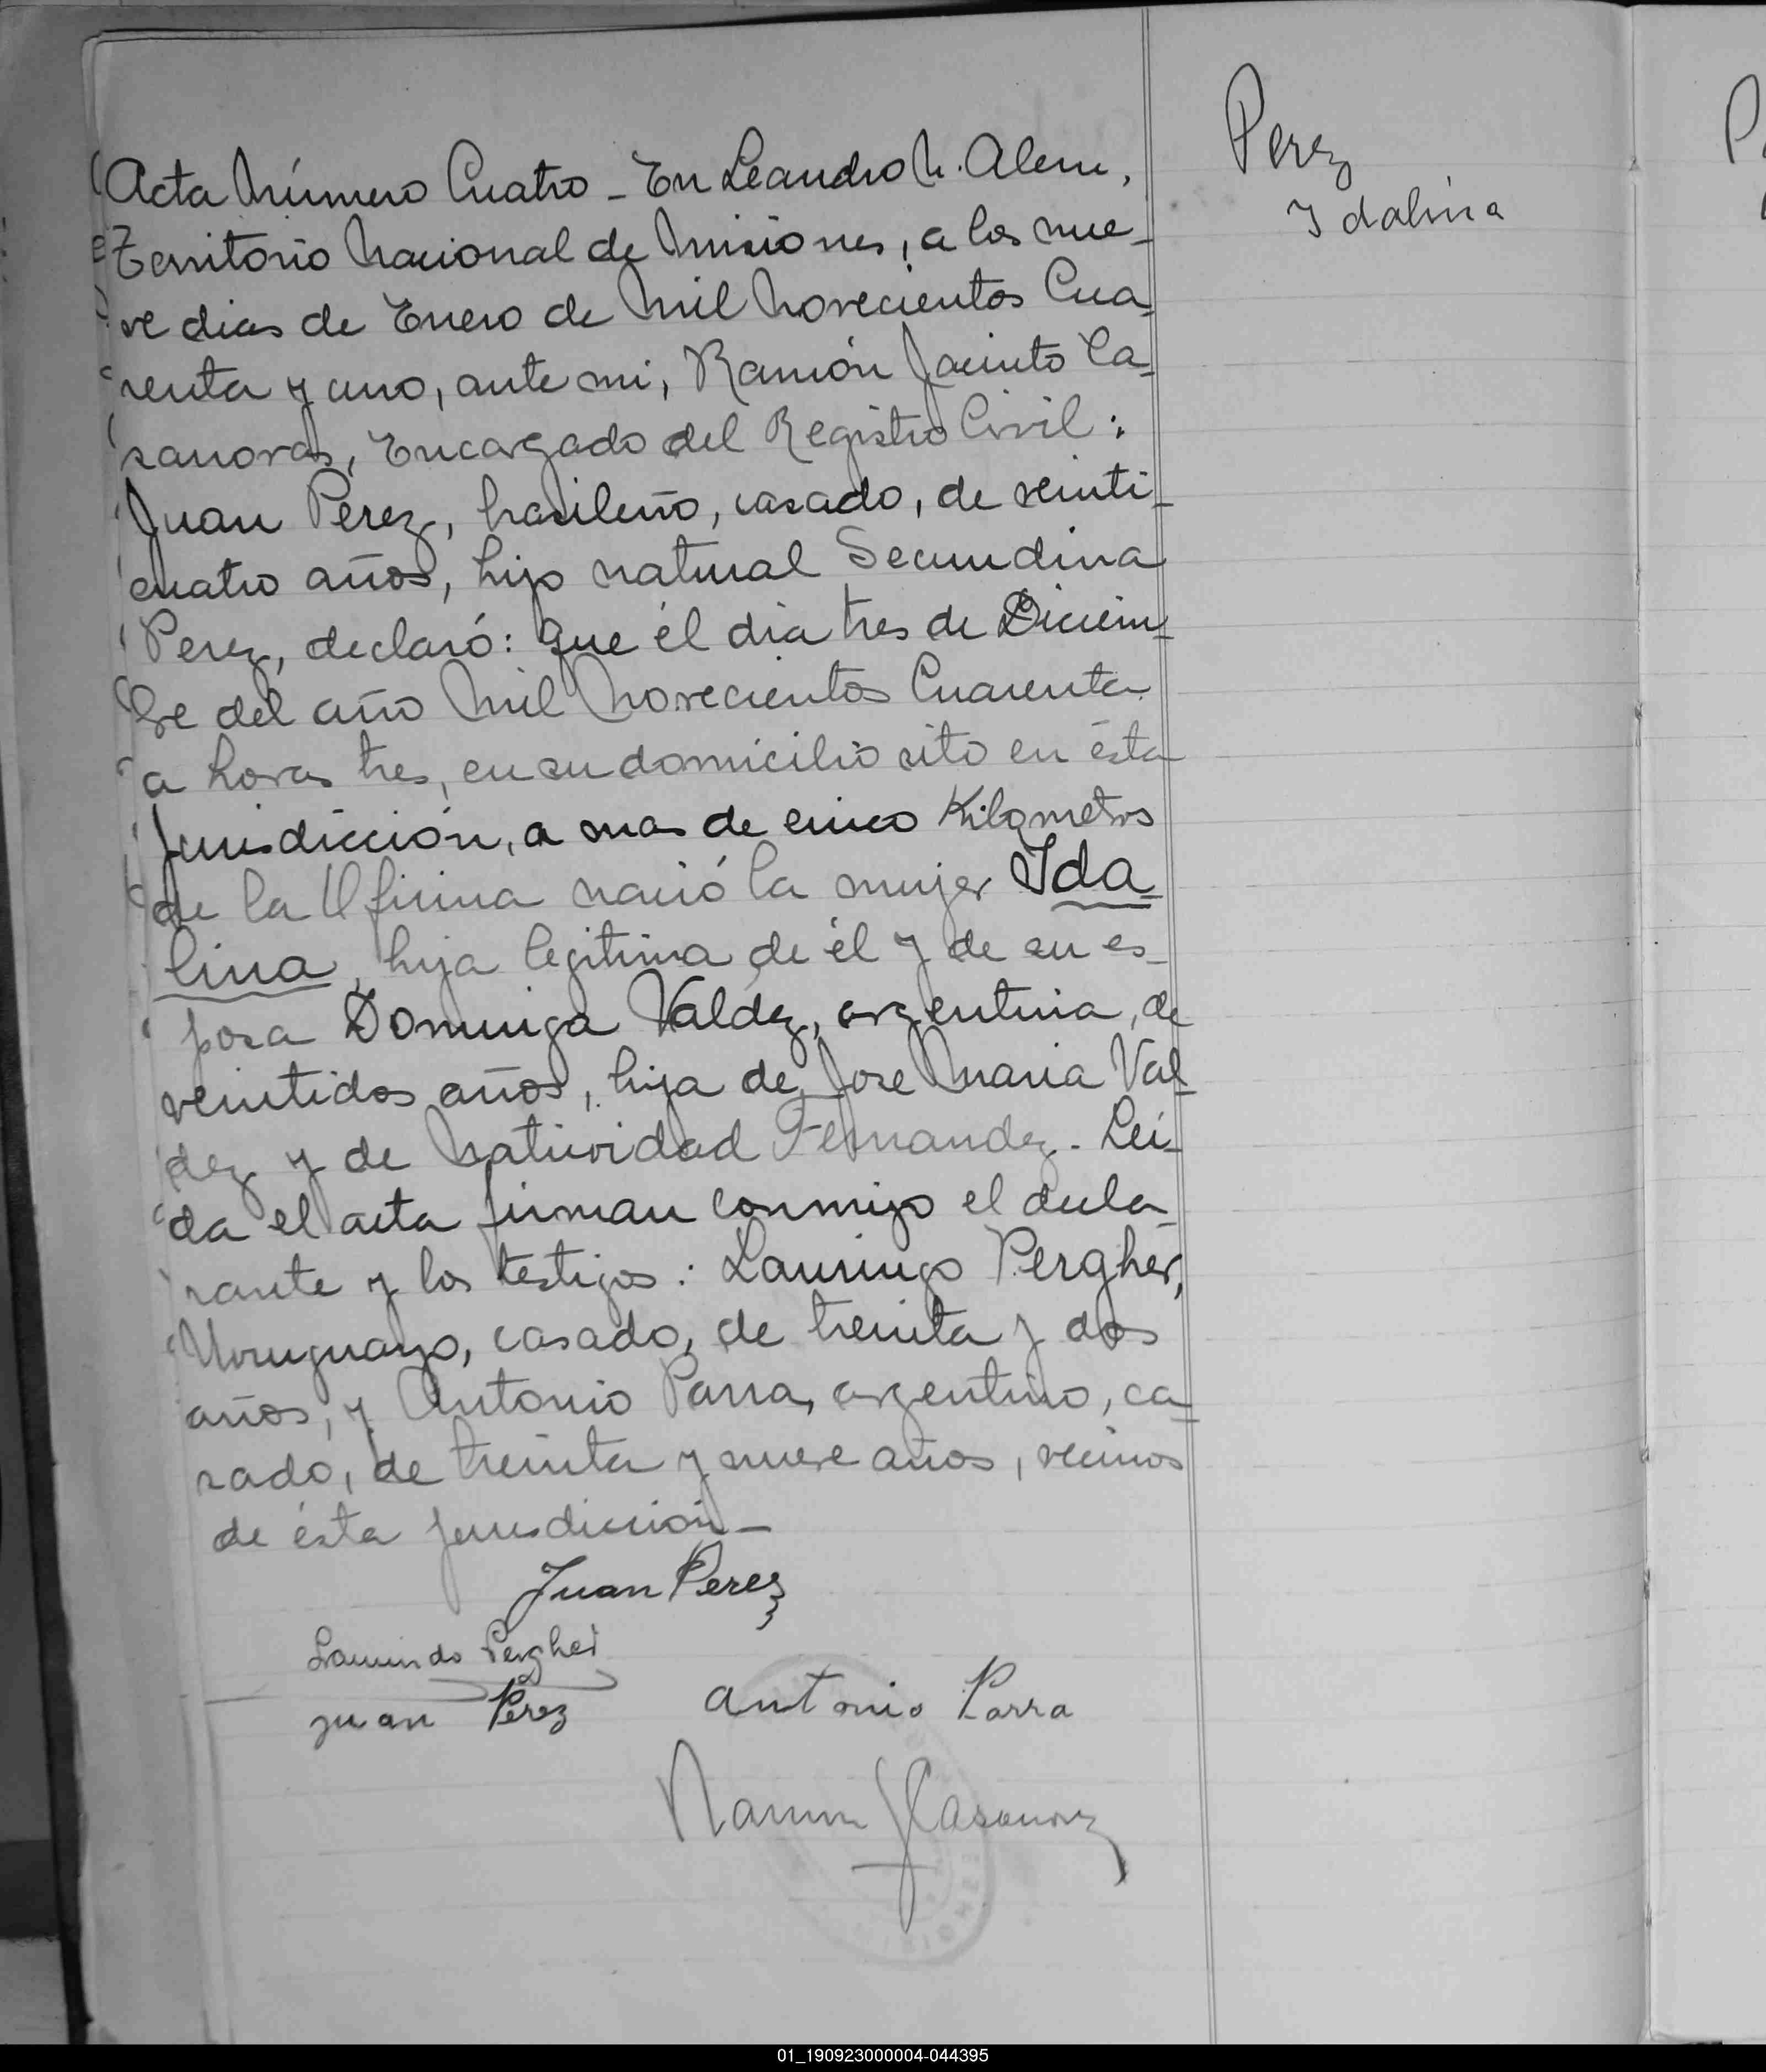 Acta Número Cuatro - En Leandro N. Alem,
Territorio Nacional de Misiones, a los nue-
ve dias de Enero de Mil Novecientos Cua-
renta y uno, ante mi, Ramón Jacinto Ca-
sanovas, Encargado del Registro Civil:
Juan Perez, brasileño, casado, de veinti-
cuatro años, hijo natural Secundina
Perez, declaró: Que él dia tres de Diciem-
bre del año Mil Novecientos Cuarenta
a horas tres, en su domicilio sito en ésta
Jurisdicción, a mas de cinco Kilometros
de la Oficina nació la mujer Ida-
lina, hija legitima de él y de su es-
posa Dominga Valdez, argentina, de
veintidos años, hija de Jose Maria Val-
dez y de Natividad Fernandez. Lei-
da el acta firman conmigo el decla-
rante y los testigos: Lauringo Pergher,
Uruguayo, casado, de treinta y dos
años, y Antonio Parra, argentino, ca-
sado, de treinta y nueve años, vecinos
de ésta jurisdicción-
Juan Perez
Laurindo Pergher
Juan Perez
Antonio Parra
Ramon J Casanovas
Perez
Idalina
01_190923000004-044395